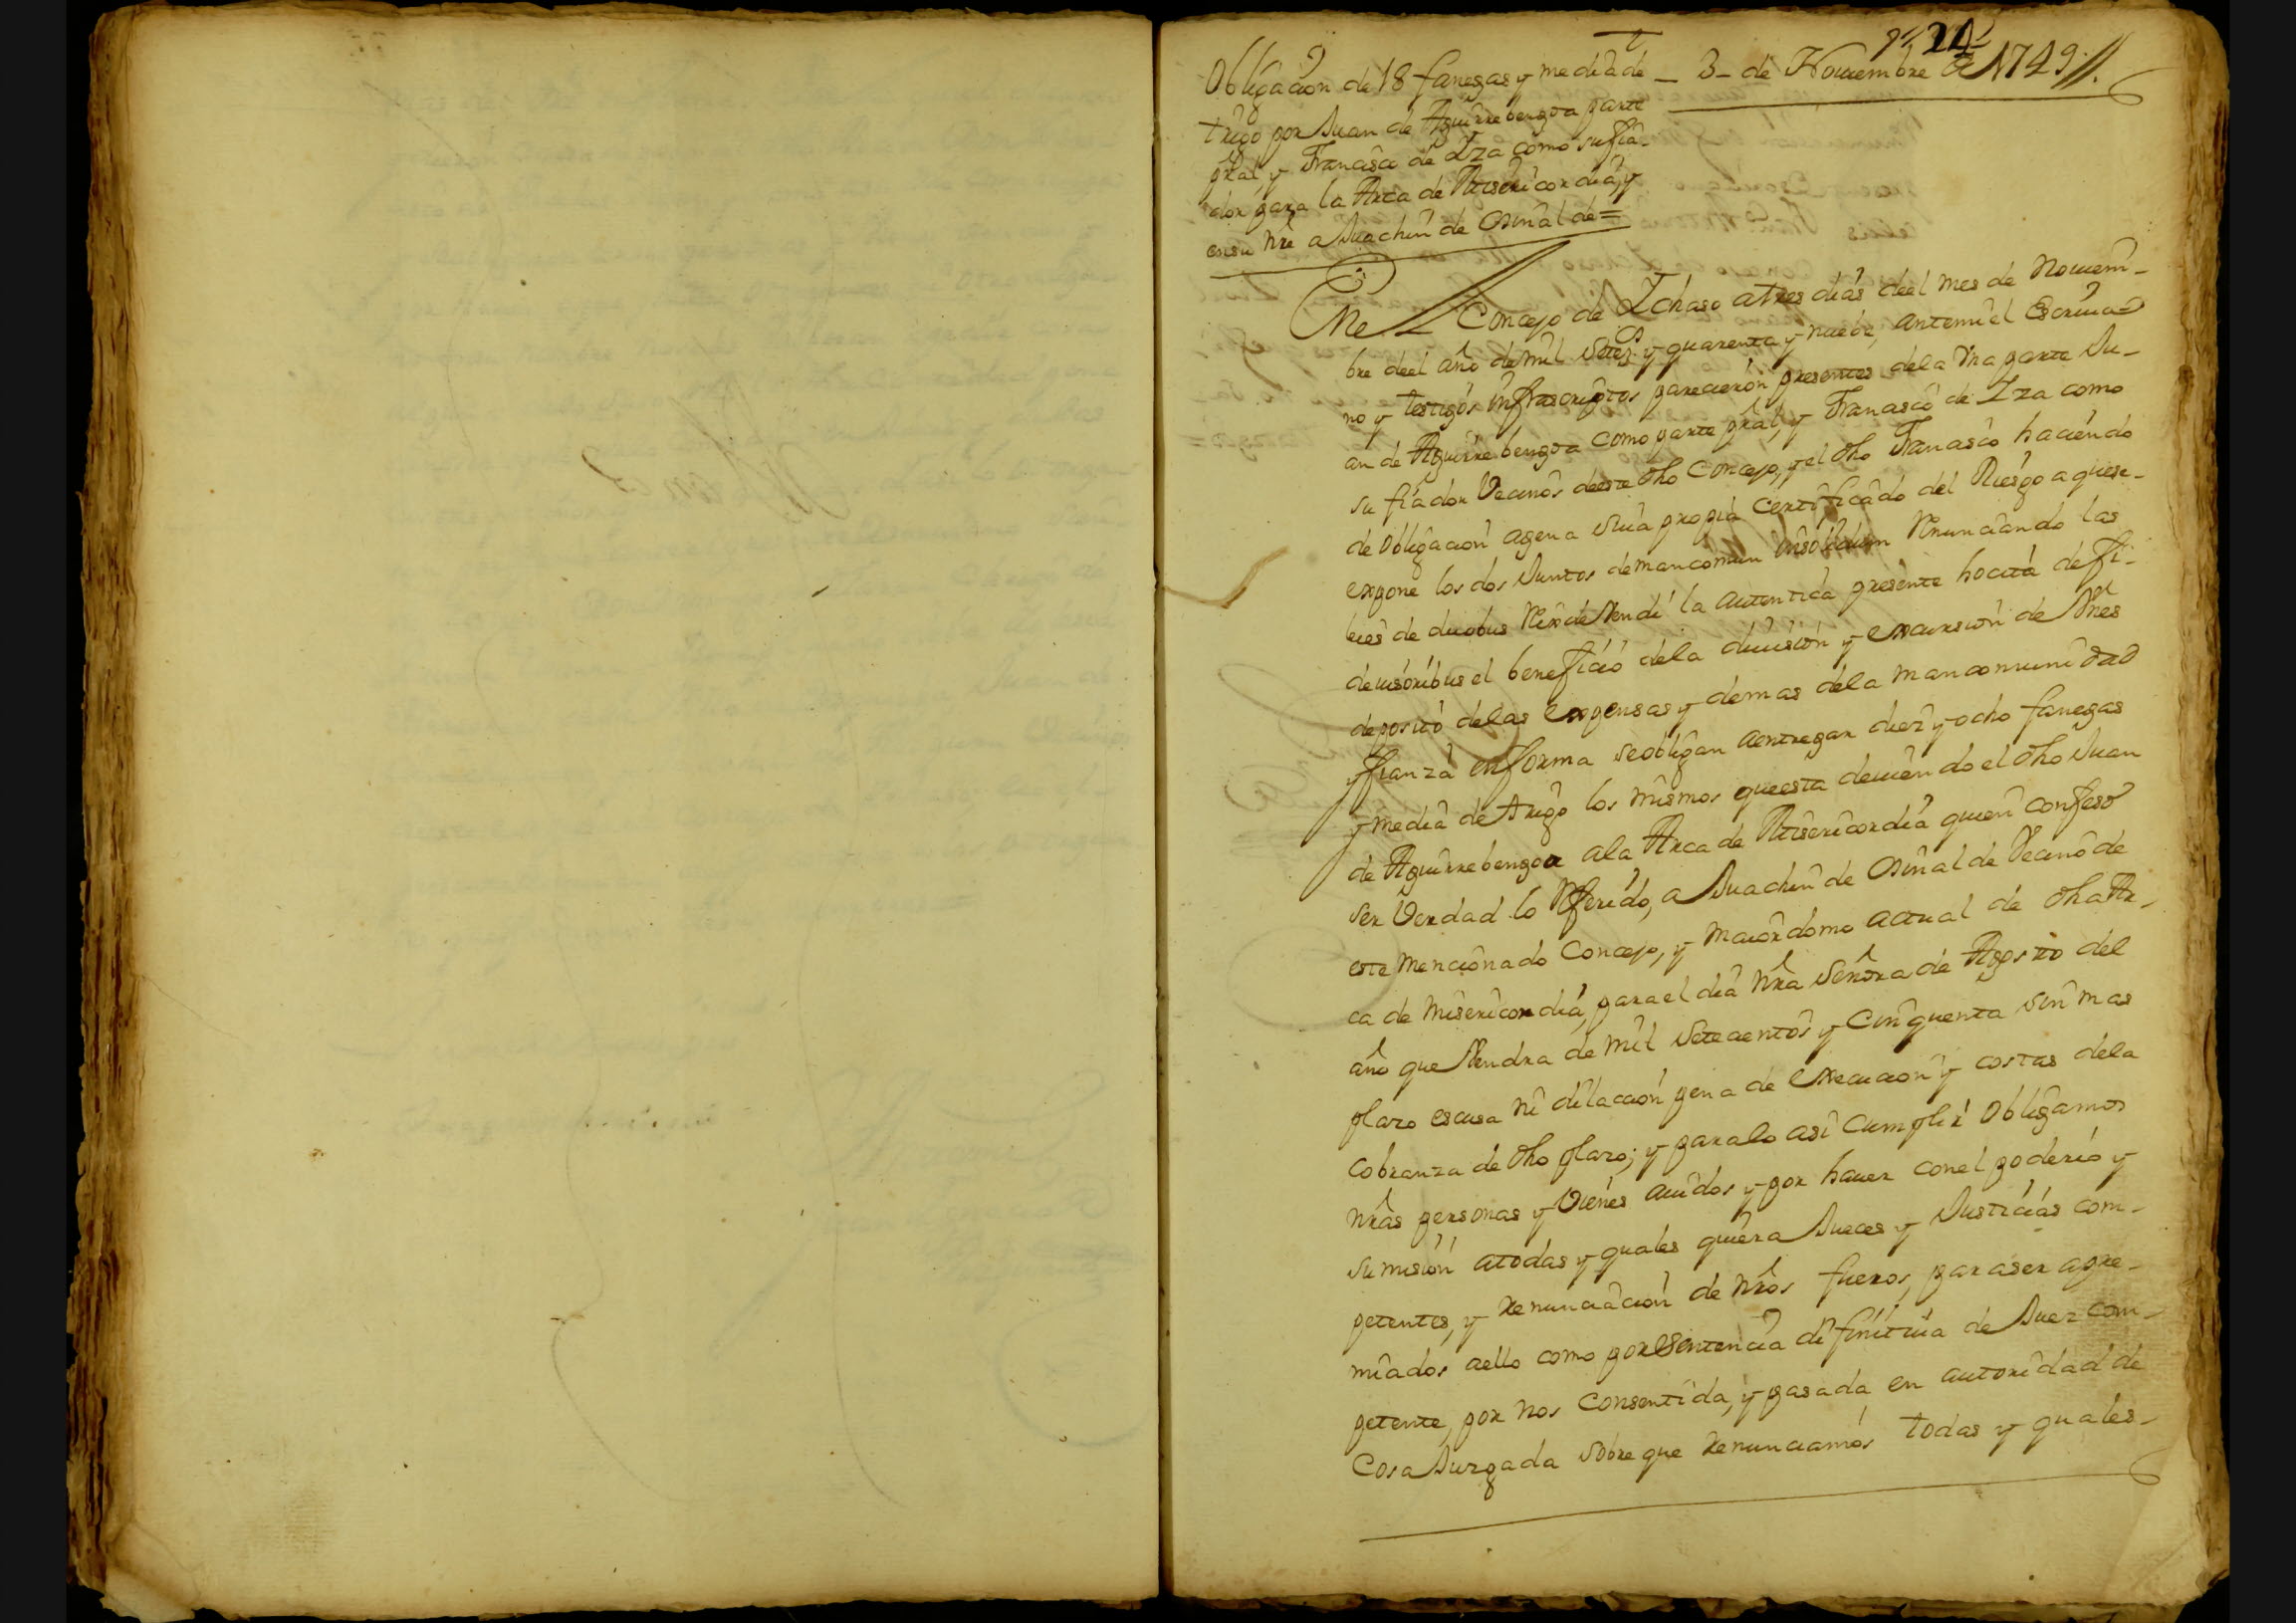 24
Obligacion de 18 fanegas y media de – 3 – de Nouiembre de 1749 //.
trigo por Juan de Aguirrebengoa parte
pral y Francisco de Yza como su fia-
dor para la Arca de Misericordia, y
en su nre a Juachin de Osinalde =
En el Concejo de Ychaso a tres dias deel mes de Nouiem-
bre deel año de mil setez.s y quarenta y nuebe, ante mi el Escriua-
no y testigos infrascriptos parecieron presentes de la vna parte Ju-
an de Aguirrebengoa como parte pral, y Francisco de Yza como
su fiador Vecinos deeste dho Concejo, y el dho Francisco haciendo
de obligacion agena suia propia certificado del Riesgo a que se
expone los dos Juntos de mancomun insolidum Renunciando las
leies de duobus Rex de vendi la autentica presente hocita de fi-
deiusoribus el beneficio de la diuision y excursion de vnes
deposito de las expensas y demas de la mancomunidad
y fianza en forma se obligan a entregar diez y ocho fanegas
y media de trigo los mismos que esta deuiendo el dho Juan
de Aguirrebengoa a la Arca de Misericordia quien confeso
ser Verdad lo Referido, a Juachin de Osinalde Vecino de
este mencionado Concejo, y maiordomo actual de dha Ar-
ca de misericordia, para el dia nra Señora de Agosto del
año que Vendra de mil setecientos y cinquenta sin mas
plazo escusa ni dilacion pena de execucion y costas de la
cobranza de dho plazo; y para lo asi cumplir obligamos
nras personas y Vienes auidos y por hauer con el poderio y
sumision a todas y quales quiera Jueces y Justicias com-
petentes, y renunciacion de nros fueros, para ser apre-
miados a ello como por sentencia difinitiua de Juez com-
petente, por nos consentida, y pasada en autoridad de
Cosa Juzgada sobre que renunciamos todas y quales-